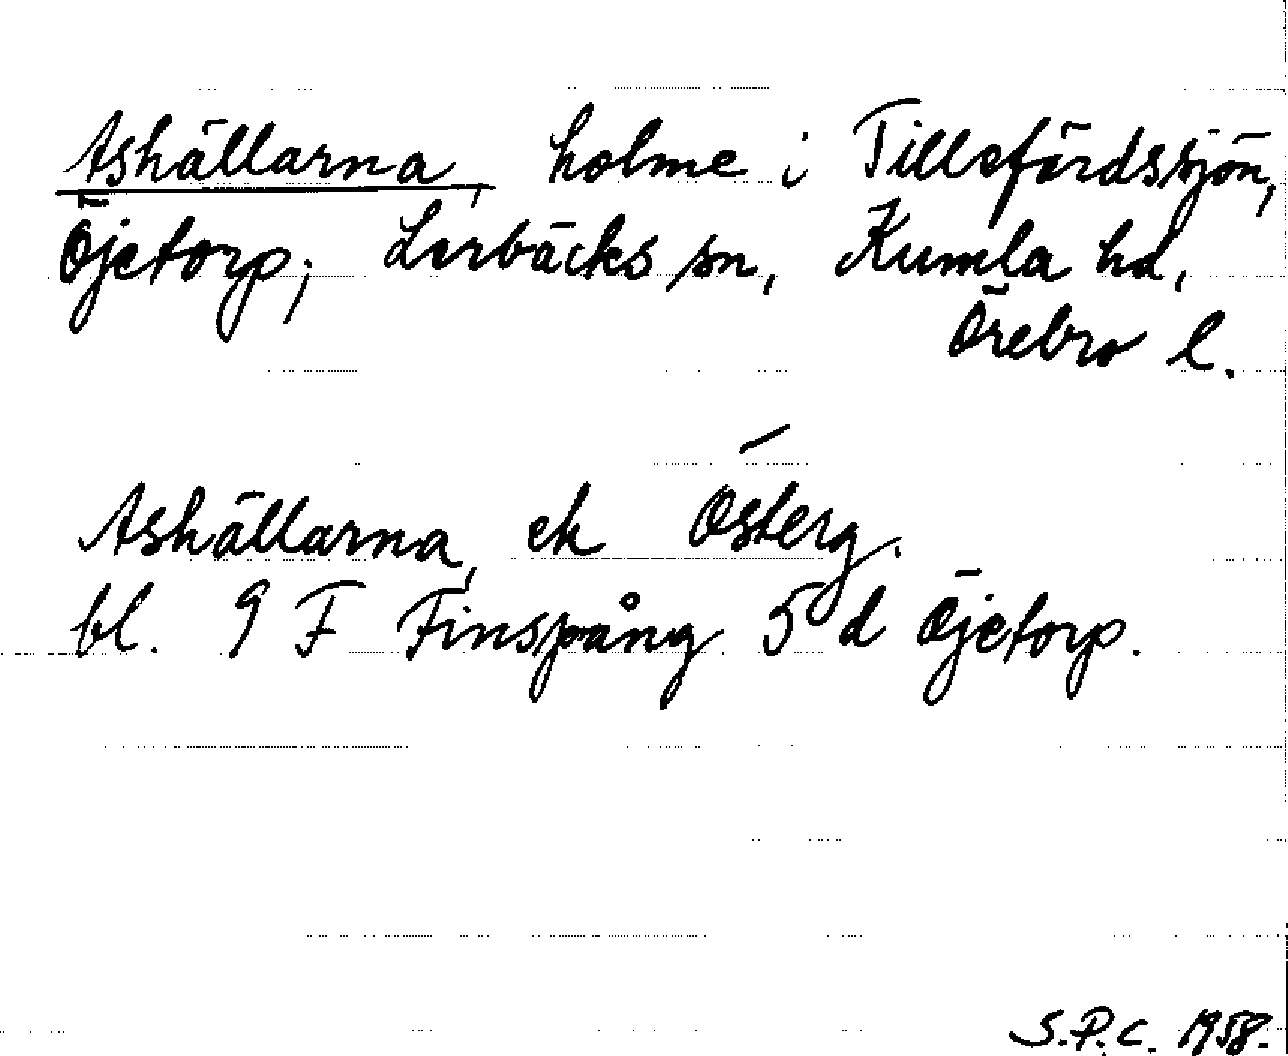 Ashällarna, holme i Tillefördssjön,
Öjetorp; Lerbäcks sn, Kumla hd,
Örebro l.
—
Ashällarna, ek Österg.
bl. 9 F Finspång 5 d Öjetorp.
S.P.C. 1958.